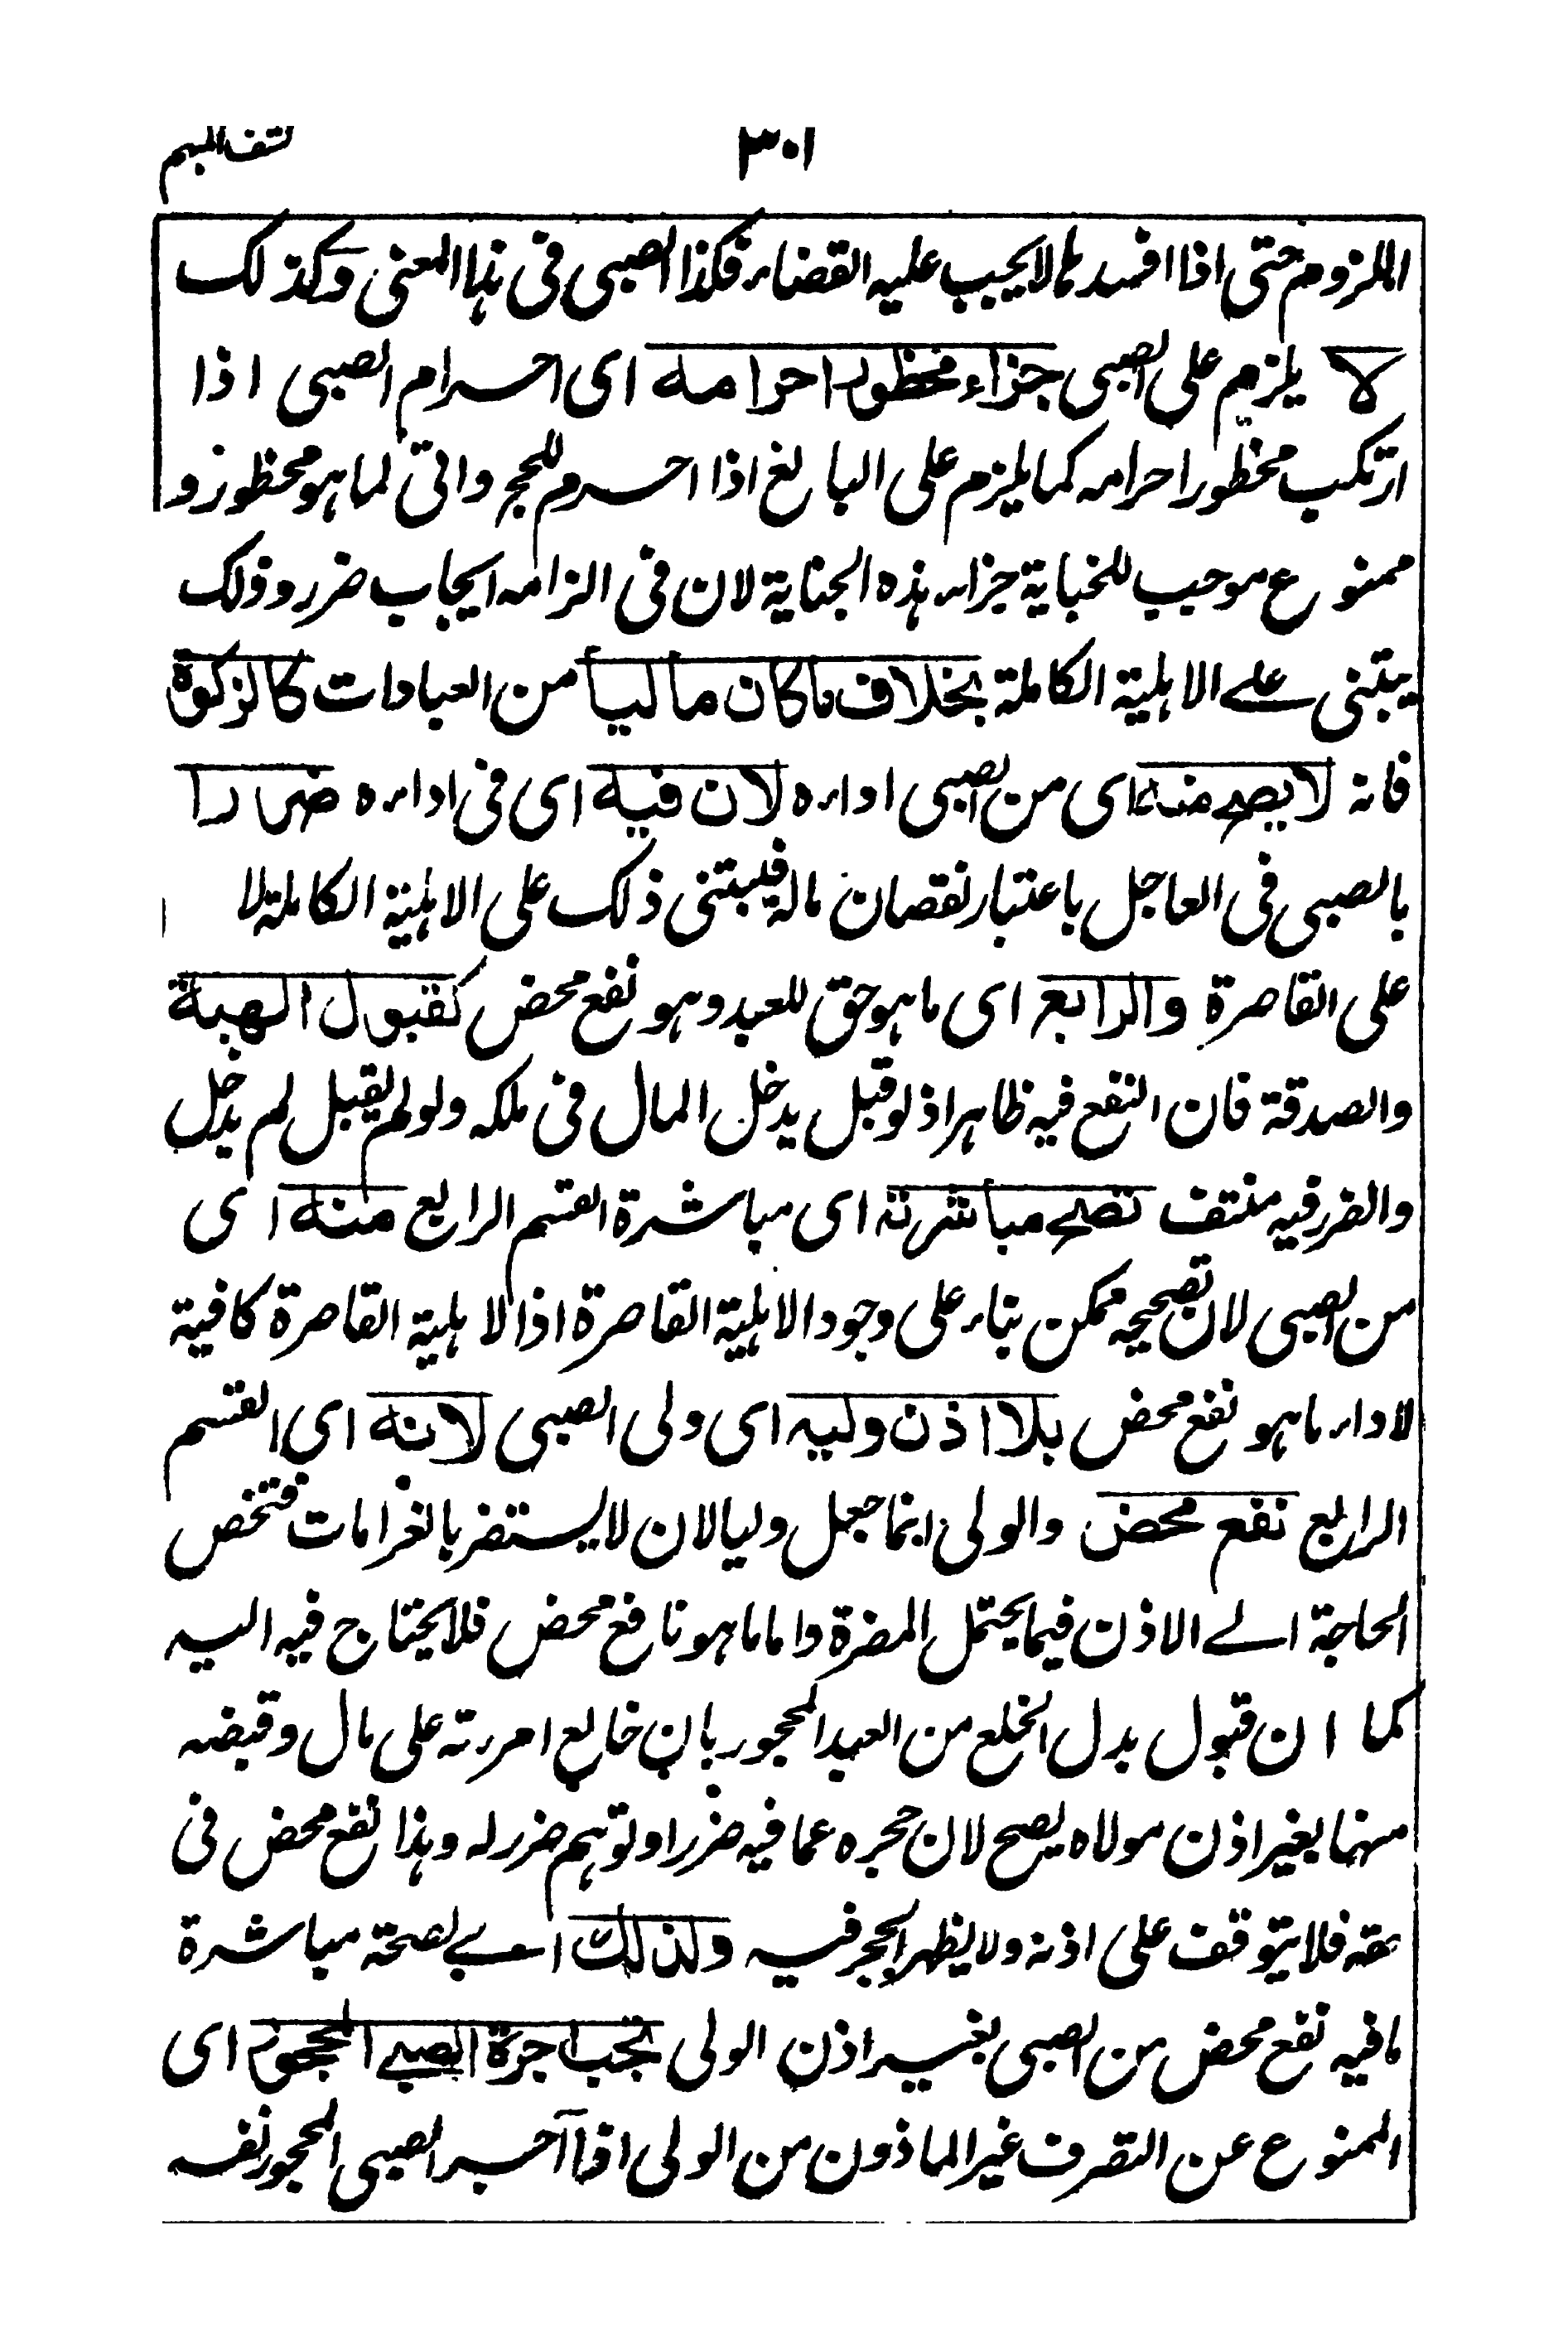 ٣٠١ كشف المبهم
اللزوم حتى اذا افسدها لا يجب عليه القضاء فكذا الصبى فى هذا المعنى وكذلك
لا يلزم على الصبى جزاء محظور احرامه اى احرام الصبى اذا
ارتكب محظور احرامه كما يلزم على البالغ اذا احرم للحج واتى لما هو محظور و
ممنوع موجب للخباية جزاء هذه الجناية لان فى الزامه ايجاب ضرر وذلك
يبتنى على الاهلية الكاملة بخلاف ما كان ماليا من العبادات كالزكوة
فانه لا يصح منه اى من الصبى اداءه لان فيه اى فى اداءه ضررا
بالصبى فى العاجل باعتبار نقصان ماله فيبتنى ذلك على الاهلية الكاملة لا
على القاصرة والرابع اى ما هو حق للعبد وهو نفع محض كقبول الهبة
والصدقة فان النفع فيه ظاهر اذ لو قبل يدخل المال فى ملكه ولو لم يقبل لم يدخل
والضرر فيه منتف تصح مباشرته اى مباشرة القسم الرابع منه اى
من الصبى لان تصحيحه ممكن بناء على وجود الاهلية القاصرة اذ الاهلية القاصرة كافية
لاداء ما هو نفع محض بلا اذن وليه اى ولى الصبى لانه اى القسم
الرابع نفع محض والولى انما جعل وليا لان لا يستضر بالغرامات فتختص
الحاجة الى الاذن فيما يحتمل المضرة واما ما هو نافع محض فلا يحتاج فيه اليه
كما ان قبول بدل الخلع من العبد المحجور بان خالع امرءته على مال وقبضه
منها بغير اذن مولاه يصح لان حجره عما فيه ضرر او توهم ضرر له وهذا نفع محض فى
حقه فلا يتوقف على اذنه ولا يظهر الحجر فيه ولذلك اى لصحة مباشرة
ما فيه نفع محض من الصبى بغير اذن الولى تجب اجرة الصبى المحجور اى
الممنوع عن التصرف غير الماذون من الولى اذا آجر الصبى المحجور نفسه